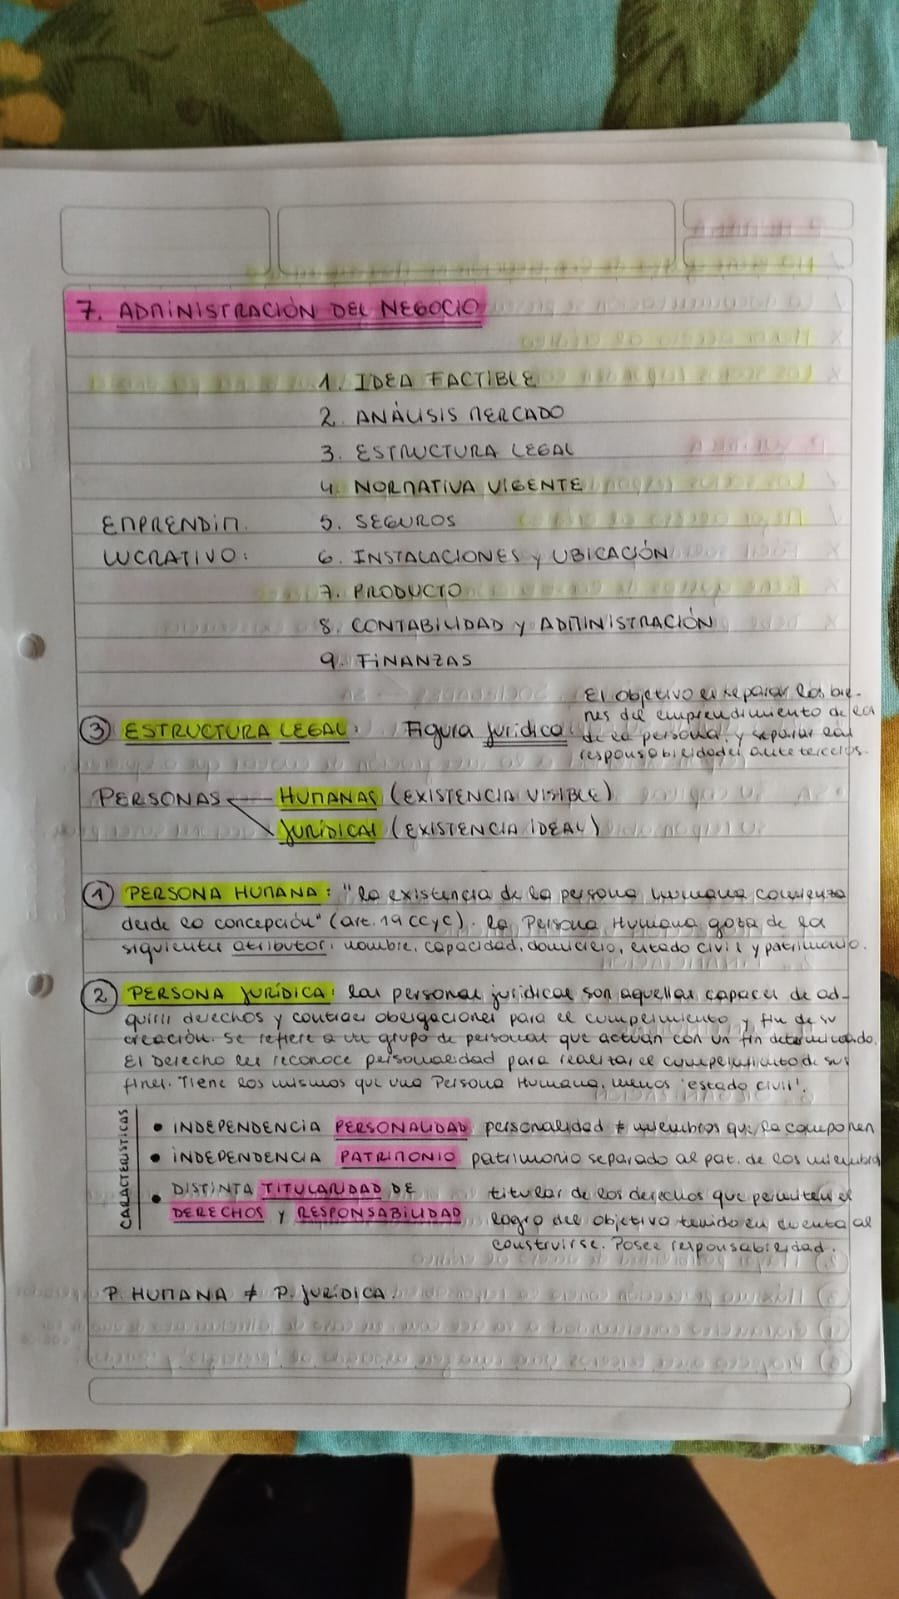 7. ADMINISTRACIÓN DEL NEGOCIO
1. IDEA FACTIBLE
2. ANÁLISIS MERCADO
3. ESTRUCTURA LEGAL
4. NORMATIVA VIGENTE
EMPRENDIM. 5. SEGUROS
LUCRATIVO: 6. INSTALACIONES y UBICACIÓN
7. PRODUCTO
8. CONTABILIDAD y ADMINISTRACIÓN
9. FINANZAS
El objetivo es separar los bie-
nes del emprendimiento de la
③ ESTRUCTURA LEGAL: Figura jurídica de la persona, y separar las
responsabilidades ante terceros.
PERSONAS HUMANAS (EXISTENCIA VISIBLE)
JURÍDICAS (EXISTENCIA IDEAL)
① PERSONA HUMANA: "la existencia de la persona humana comienza
desde la concepción" (art. 19 CCyC). La Persona Humana goza de los
siguientes atributos: nombre, capacidad, domicilio, estado civil y patrimonio.
② PERSONA JURÍDICA: las personas jurídicas son aquellas capaces de ad-
quirir derechos y contraer obligaciones para el cumplimiento y fin de su
creación. Se refiere a un grupo de personas que actúan con un fin determinado.
El Derecho les reconoce personalidad para realizar el cumplimiento de sus
fines. Tiene los mismos que una Persona Humana, menos 'estado civil'.
CARACTERÍSTICAS
• INDEPENDENCIA PERSONALIDAD personalidad ≠ miembros que la componen
• INDEPENDENCIA PATRIMONIO patrimonio separado al pat. de los miembros
• DISTINTA TITULARIDAD DE titular de los derechos que permiten el
DERECHOS y RESPONSABILIDAD logro del objetivo tenido en cuenta al
construirse. Posee responsabilidad.
P. HUMANA ≠ P. JURÍDICA.